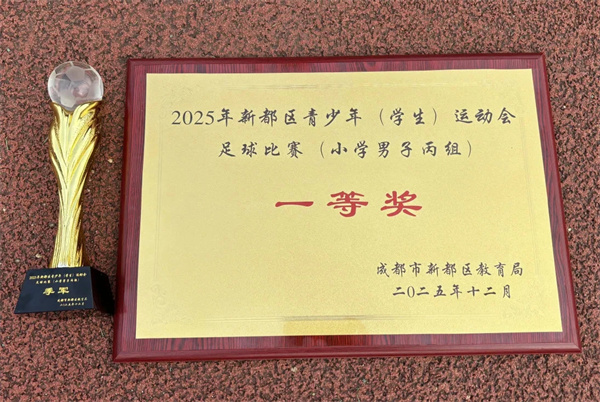 2025年新都区青少年（学生）运动会
足球比赛（小学男子丙组）
一等奖
成都市新都区教育局
二〇二五年十二月
季军